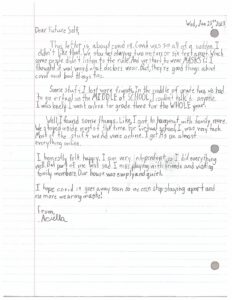 Wed, Jan 25th, 2023
Dear Future Self,
This letter is about covid 19. Covid was so all of a sudden. I
didn't like that we should be staying two meters or six feet apart which
some people didn't listen to the rule. And we had to wear MASKS!!! I
thought it was weird what doctors wear. But, they're good things about
covid and bad things too.
Some stuff I lost were friends. In the middle of grade two we had
to go virtual in the MIDDLE of SCHOOL. I couldn't talk to anyone.
I was lonely. I went online for grade three for the WHOLE year!
Well I found some things. Like, I got to hang out with family more.
We stayed inside most of the time for virtual school. I was very
Most of the stuff we did was online. I got to do almost
everything online.
I honestly felt happy. I am very independent so I did everything
well. One part of me felt sad. I miss playing with friends and visiting
family members. Our house was empty and quiet.
I hope covid 19 goes away soon so we can stop staying apart and
no more wearing masks!
From,